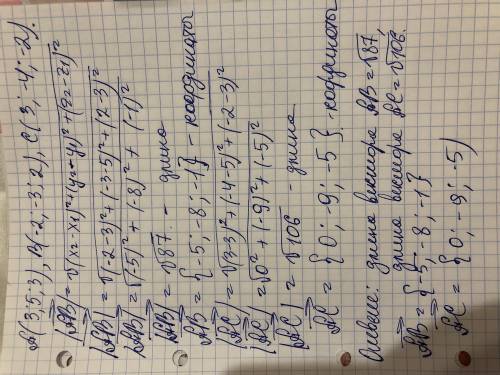 A(3;5;3), B(-2;-3;2), C(3;-4;-2).
|AB| = √(x₂-x₁)²+(y₂-y₁)²+(z₂-z₁)²
|AB| = √(-2-3)²+(-3-5)²+(2-3)²
|AB| = √(-5)²+(-8)²+(-1)²
|AB| = √87 - длина
AB = {-5; -8; -1} - координаты
|AC| = √(3-3)²+(-4-5)²+(-2-3)²
|AC| = √0²+(-9)²+(-5)²
|AC| = √106 - длина
AC = {0; -9; -5} - координаты
Ответ: длина вектора AB = √87,
длина вектора AC = √106.
AB = {-5; -8; -1}
AC = {0; -9; -5)